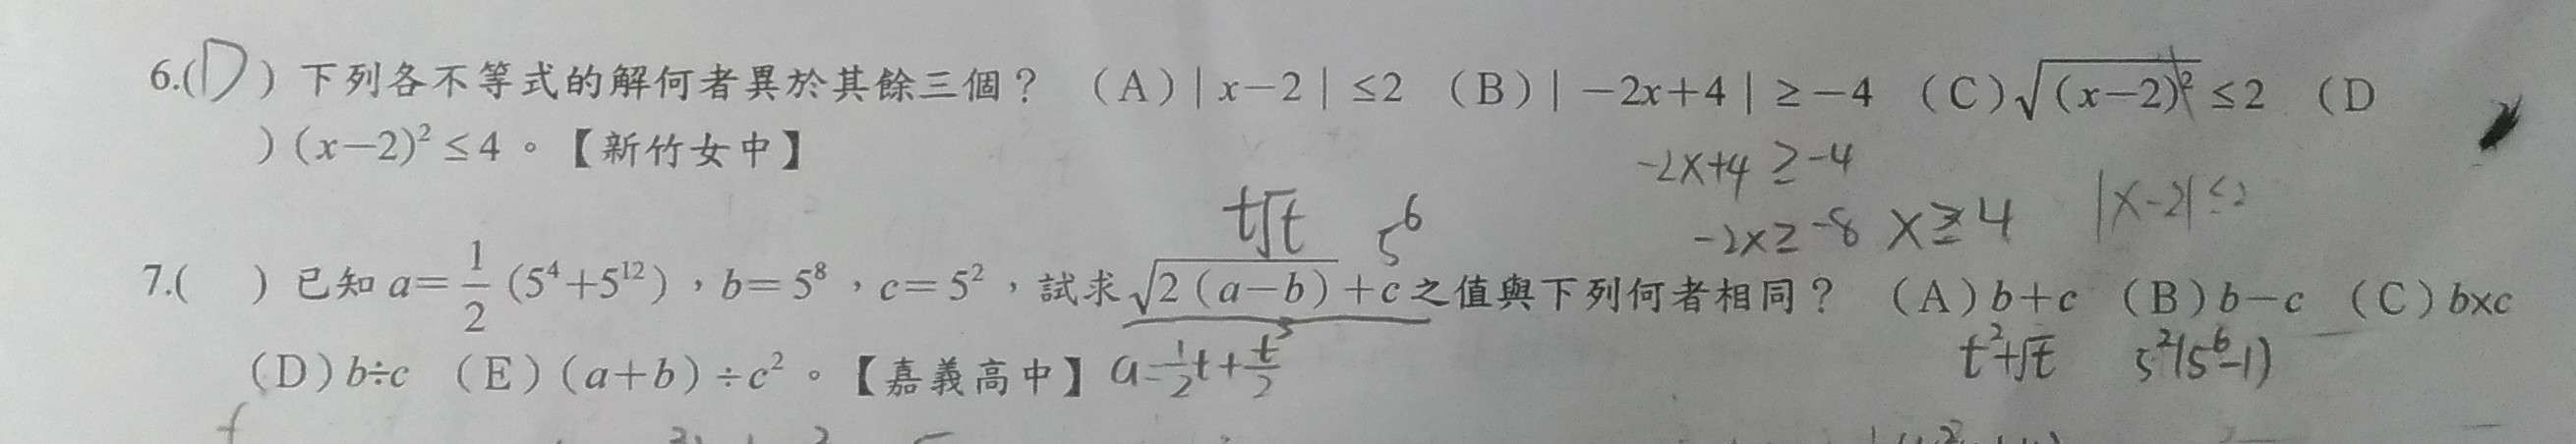 6.(D) 下列各不等式的解何者異於其餘三個？ (A)|x−2|≤2 (B)|−2x+4|≥−4 (C)√(x−2)² ≤2 (D
)(x−2)²≤4。【新竹女中】
-2x+4 ≥ -4
t√t 5⁶
-2x≥-8 x≥4 |x-2|≤2
7.( ) 已知 a=1/2(5⁴+5¹²)，b=5⁸，c=5²，試求√2(a−b)+c之值與下列何者相同？ (A)b+c (B)b−c (C)b×c
t²+√t 5²(5⁶-1)
(D)b÷c (E)(a+b)÷c²。【嘉義高中】 a=1/2t+t³/2